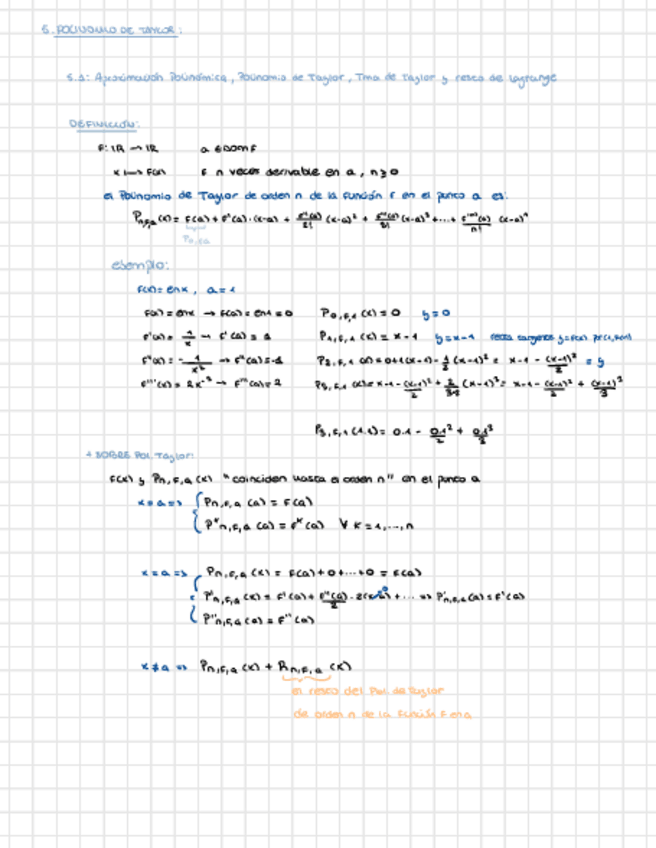 5. POLINOMIO DE TAYLOR:
5.1: Aproximación Polinómica, Polinomio de Taylor, Tma de Taylor y resto de Lagrange
DEFINICIÓN:
F: IR → IR a ∈ DOM F
x ↦ F(x) F n veces derivable en a, n ≥ 0
el Polinomio de Taylor de orden n de la función F en el punto a es:
Pn,F,a (x) = F(a) + F'(a)·(x-a) + F''(a)/2! (x-a)² + F'''(a)/3! (x-a)³ + ... + F⁽ⁿ⁾(a)/n! (x-a)ⁿ
P0,F,a
ejemplo:
F(x) = ln x, a = 1
F(x) = ln x → F(1) = ln 1 = 0 P0,F,1 (x) = 0 y = 0
F'(x) = 1/x → F'(1) = 1 P1,F,1 (x) = x-1 y = x-1 recta tangente y=F(x)
F''(x) = -1/x² → F''(1) = -1 P2,F,1 (x) = 0+1(x-1) - 1/2 (x-1)² = x-1 - (x-1)²/2 = y
F'''(x) = 2x⁻³ → F'''(1) = 2 P3,F,1 (x) = x-1 - (x-1)²/2 + 2/3·2 (x-1)³ = x-1 - (x-1)²/2 + (x-1)³/3
P3,F,1 (1.1) = 0.1 - 0.1²/2 + 0.1³/3
+ SOBRE Pol. Taylor:
F(x) y Pn,F,a (x) "coinciden hasta el orden n" en el punto a
x = a => { Pn,F,a (a) = F(a)
Pᴷn,F,a (a) = Fᴷ(a) ∀ K = 1,...,n
x = a => { Pn,F,a (x) = F(a) + 0 + ... + 0 = F(a)
P'n,F,a (x) = F'(a) + F''(a)/2 · 2(x-a) + ... => P'n,F,a (a) = F'(a)
P''n,F,a (a) = F''(a)
x ≠ a => Pn,F,a (x) + Rn,F,a (x)
el resto del Pol. de Taylor
de orden n de la función F en a